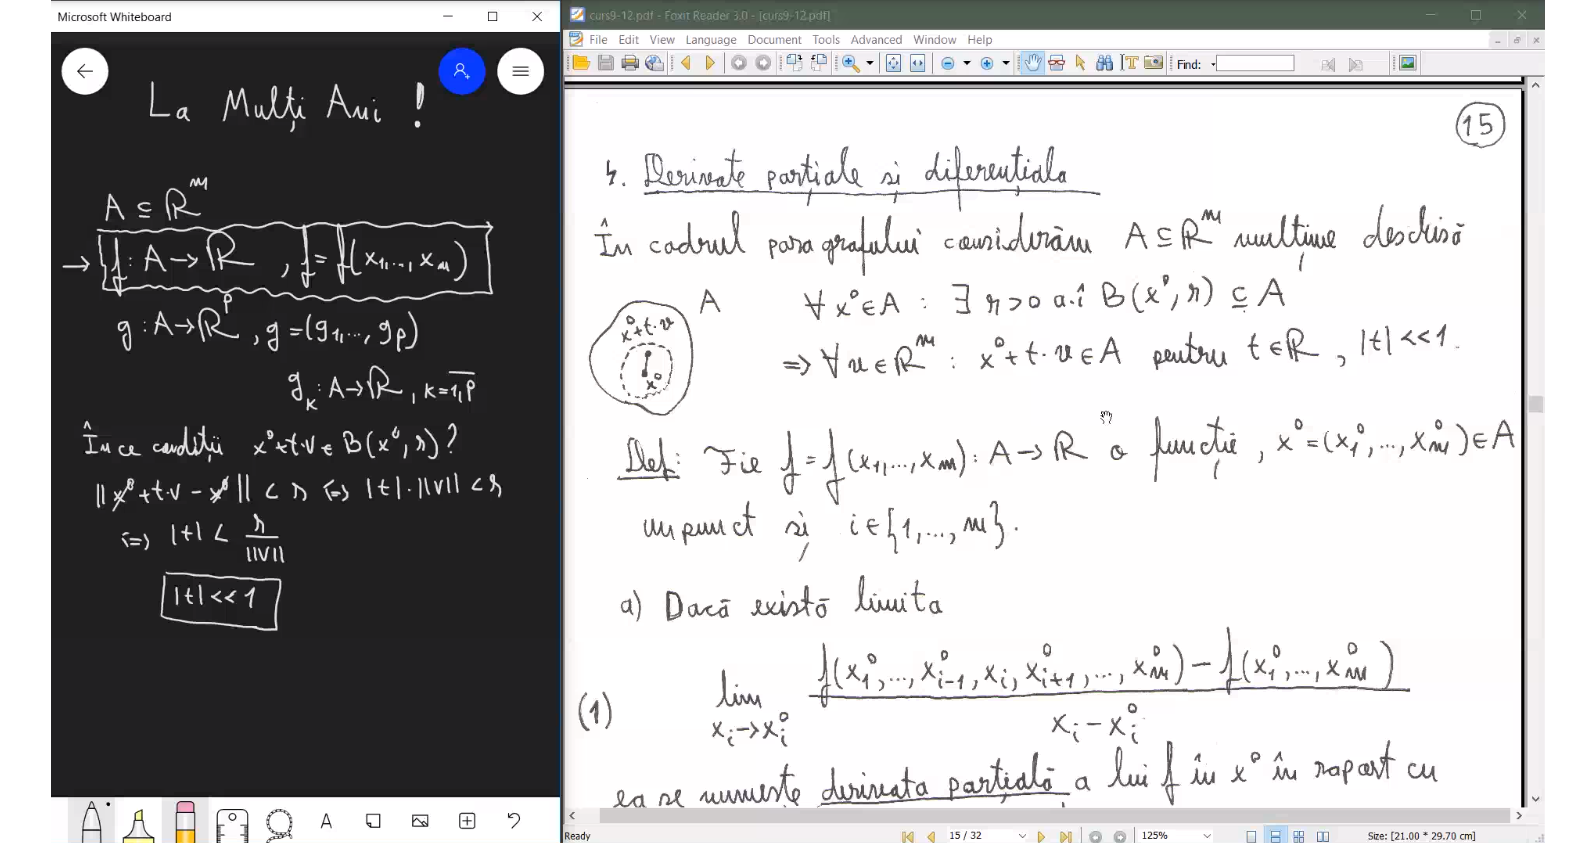 Microsoft Whiteboard
La Mulți Ani !
A ⊆ ℝᵐ
→ f : A → ℝ , f = f(x₁,..., xₘ)
g : A → ℝᵖ , g = (g₁,..., gₚ)
gₖ : A → ℝ , k = 1,p
În ce condiții x⁰+t·v ∈ B(x⁰, r) ?
|| x⁰ + t·v − x⁰ || < r ⇔ |t|·||v|| < r
⇔ |t| < r / ||v||
|t| << 1
A
curs9-12.pdf - Foxit Reader 3.0 - [curs9-12.pdf]
File Edit View Language Document Tools Advanced Window Help
Find:
15
4. Derivate parțiale și diferențiala
În cadrul paragrafului considerăm A ⊆ ℝᵐ mulțime deschisă
A ∀ x⁰ ∈ A : ∃ r > 0 a.î B(x⁰, r) ⊆ A
x⁰+t·v
x⁰
⇒ ∀ v ∈ ℝᵐ : x⁰ + t·v ∈ A pentru t ∈ ℝ , |t| << 1.
Def: Fie f = f(x₁,..., xₘ) : A → ℝ o funcție , x⁰ = (x₁⁰, ..., xₘ⁰) ∈ A
un punct și i ∈ {1,..., m}.
a) Dacă există limita
(1) lim xᵢ→xᵢ⁰ f(x₁⁰,..., xᵢ₋₁⁰, xᵢ, xᵢ₊₁⁰,..., xₘ⁰) − f(x₁⁰,..., xₘ⁰) / xᵢ − xᵢ⁰
ea se numește derivata parțială a lui f în x⁰ în raport cu
Ready 15 / 32 125% Size: [21.00 * 29.70 cm]